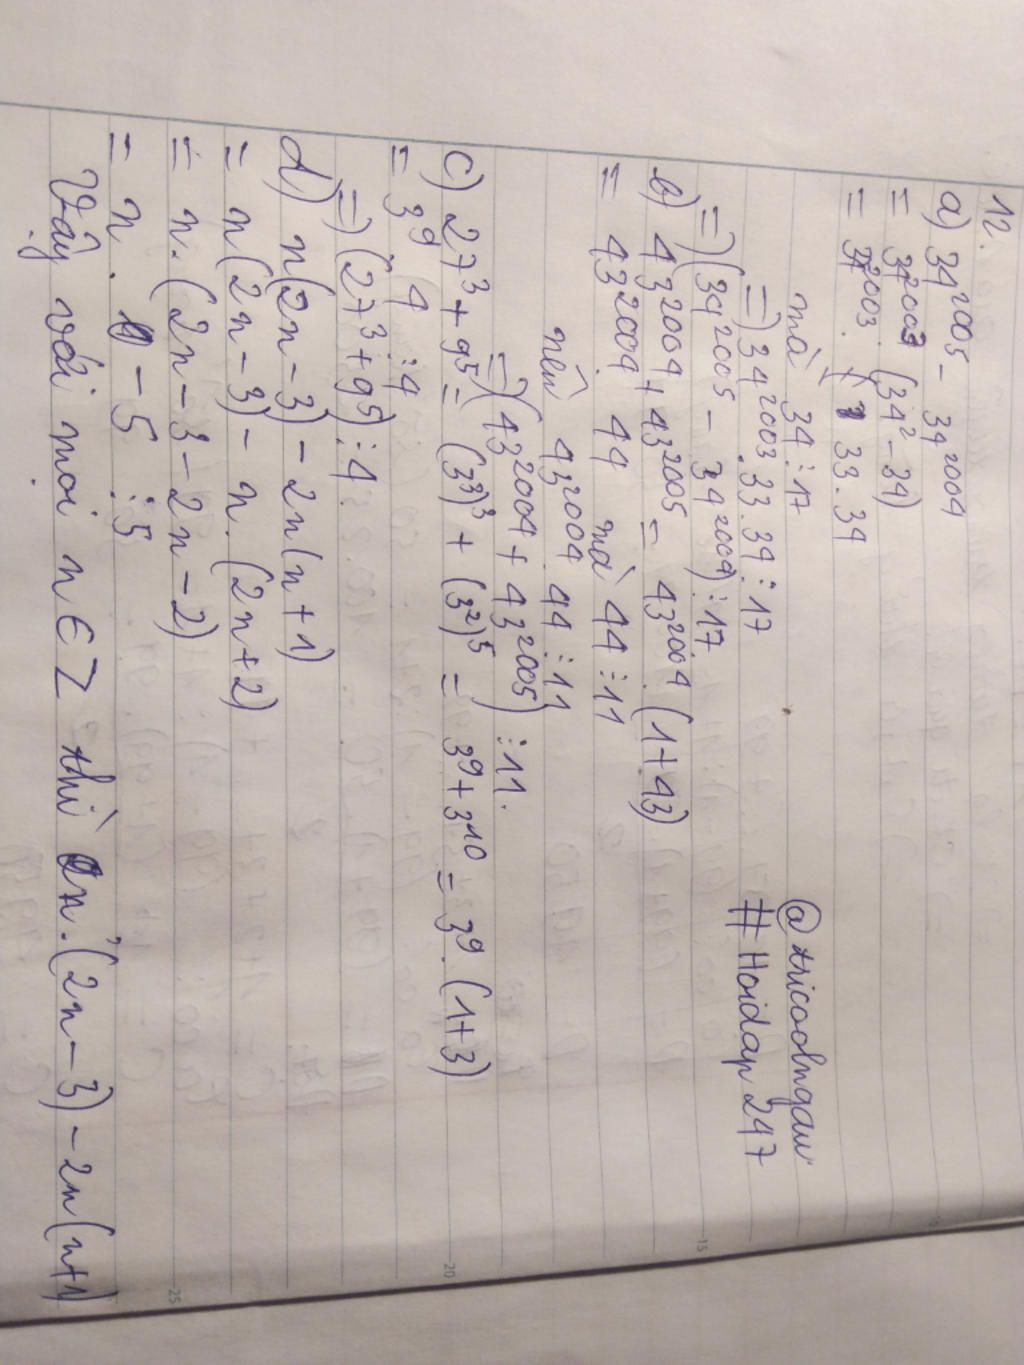 12.
a) 34²⁰⁰⁵ - 34²⁰⁰⁴
= 34²⁰⁰³ (34² - 34)
= 34²⁰⁰³. 33.34
mà 34 ⋮ 17
=) 34²⁰⁰³.33.34 ⋮ 17
=) (34²⁰⁰⁵ - 34²⁰⁰⁴) ⋮ 17
b) 43²⁰⁰⁴ + 43²⁰⁰⁵ = 43²⁰⁰⁴. (1+43)
= 43²⁰⁰⁴. 44 mà 44 ⋮ 11
nên 43²⁰⁰⁴. 44 ⋮ 11
=) (43²⁰⁰⁴ + 43²⁰⁰⁵) ⋮ 11.
c) 27³ + 9⁵ = (3³)³ + (3²)⁵ = 3⁹ + 3¹⁰ = 3⁹. (1+3)
= 3⁹. 4 ⋮ 4
=) (27³ + 9⁵) ⋮ 4.
d) n(2n-3) - 2n(n+1)
= n(2n-3) - n.(2n+2)
= n.(2n-3-2n-2)
= n. -5 ⋮ 5
Vậy với mọi n ∈ Z thì n.(2n-3) - 2n(n+1)
@tricoolngau
#Hoidap247
15
20
25